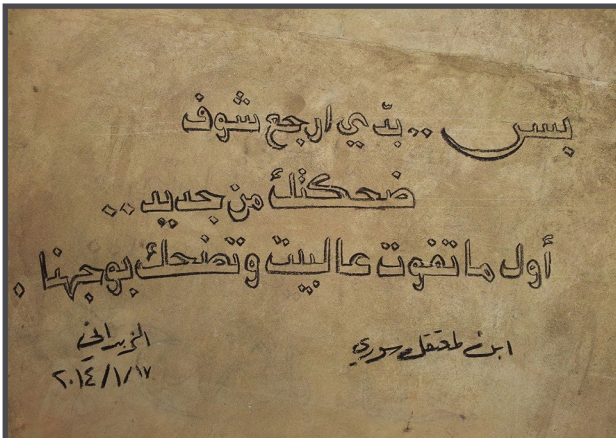 بس .. بدّي ارجع شوف
ضحكتك من جديد ..
أول ما تفوت عالبيت وتضحك بوجهنا .
ابن لمعتقل سوري
الزبداني
٢٠١٤/١/١٧